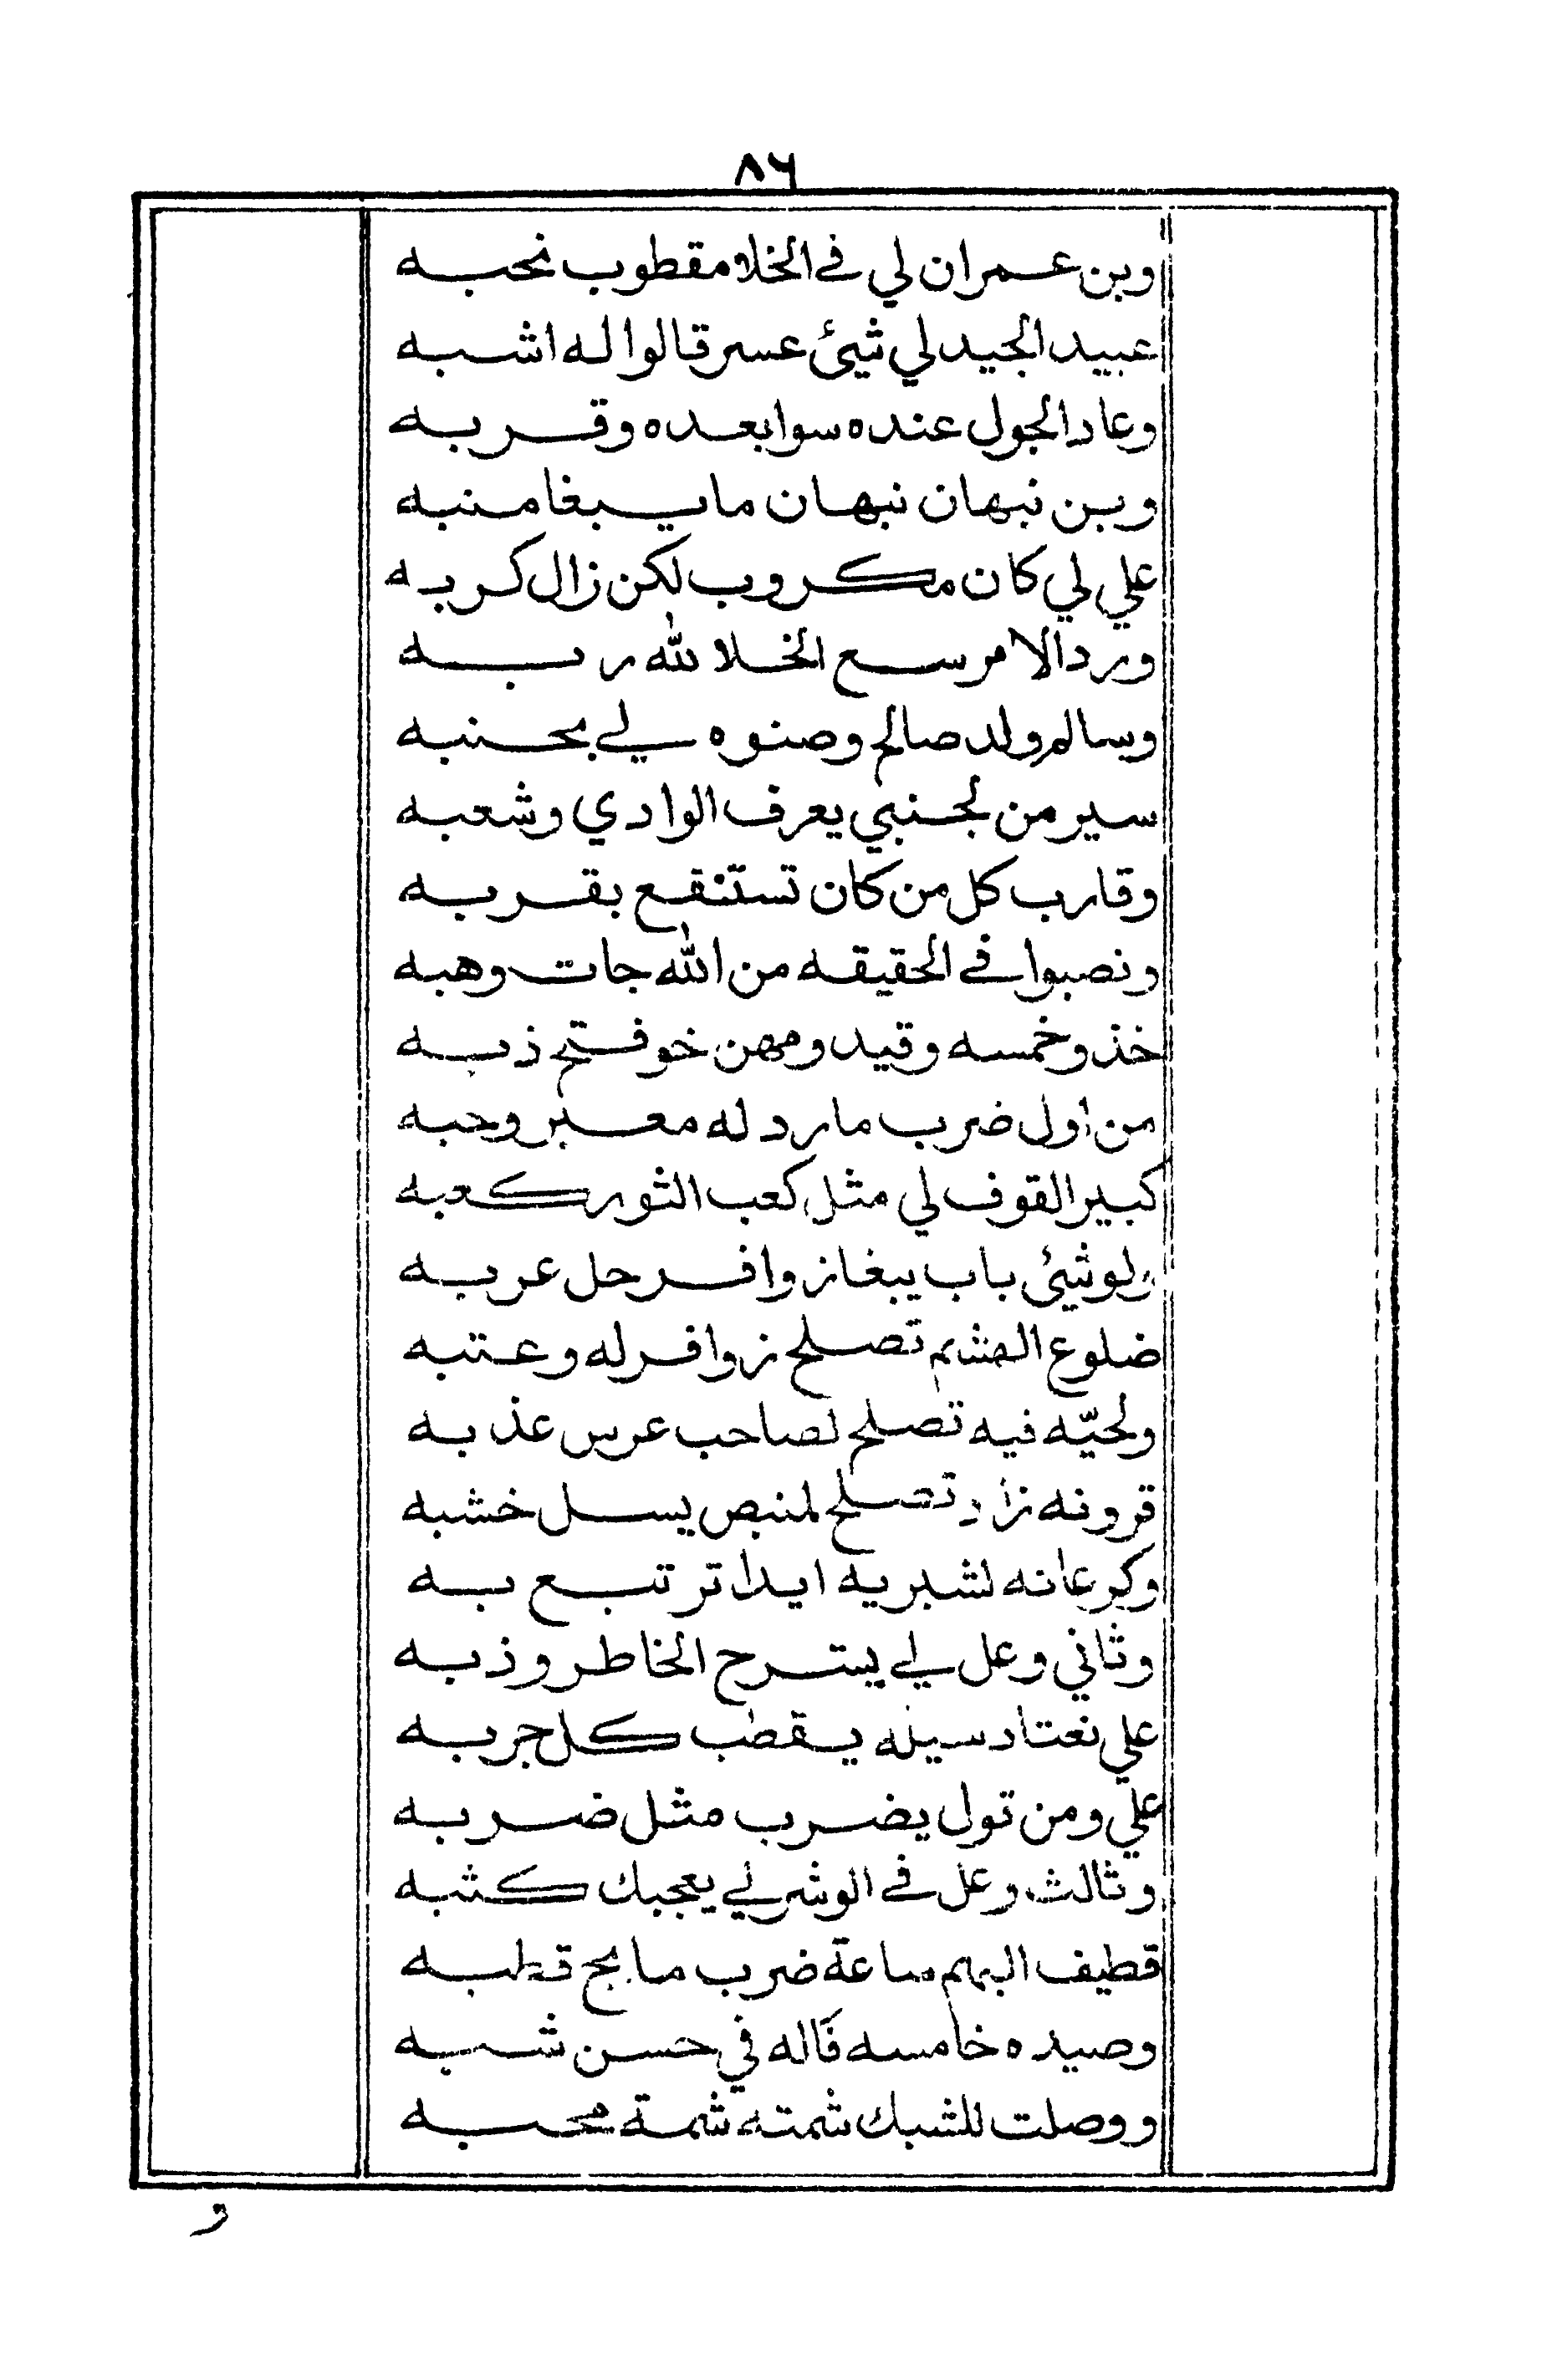 ٨٦
وبن عمران لي في الخلا مقطوب نحبه
عبيد الجيد لي شيئ عسر قالوا له اشبه
وعاد الجول عنده سوا بعده وقربه
وبن نبهان نبهان ما يبغا منبه
علي لي كان مكروب لكن زال كربه
ورد الامر سع الخلا لله ربه
وسالم ولد صالح وصنوه لي بجنبه
سير من لجنبي يعرف الوادي وشعبه
وقارب كل من كان تستنقع بقربه
ونصبوا في الحقيقه من الله جات وهبه
خذ وخمسه وقيدومهن خو فتح ذبه
من اول ضرب مارد له معبر وحبه
كبير القوف لي مثل كعب الثور كعبه
ولو شيئ باب يبغا زوافر حل عربه
ضلوع الهشم تصلح زوافر له وعتبه
ولحيّه فيه تصلح لصاحب عرس عذبه
قرونه زاد تصلح لمنبص يسل خشبه
وكرعانه لشبريه ايدا تر تبع به
وثاني وعل لي يسترح الخاطر وذبه
علي نعتاد سيله يقطب كل جربه
علي ومن تول يضرب مثل ضربه
وثالث وعل في الوشر لي يعجبك كثبه
قطيف البهم ساعة ضرب ما بج قطبه
وصيده خامسه قاله في حسن شبه
ووصلت للشبك شمته شمة محبه
و